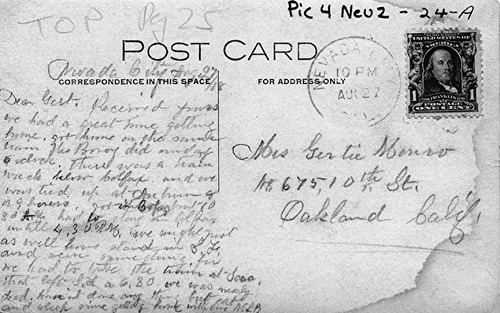 TOP Pg 25
Pic 4 Neu2 - 24-A
POST CARD
CORRESPONDENCE IN THIS SPACE
FOR ADDRESS ONLY
NEVADA
10 PM
AUG 27
UNITED STATES OF AMERICA
POSTAGE
ONE CENT
Nevada City Aug 27
Dear Gert. Received yours
we had a great time getting
home, got home on the same
train the Boy did any way
6 o'clock. There was a train
wreck below Colfax and we
was tied up at the
2 hours, got in Colfax at 10
30 A had to stay in Colfax
until 4,30 P.M. We might just
as well have staid in S.F.
and seen something for
we had to take the train at
that left S.F. at 6,20. we was nearly
dead, have not done any thing but eat
and sleep since getting home with love N.L.B
Mrs Gertie Monro
No 675, 10th St.
Oakland Calif.